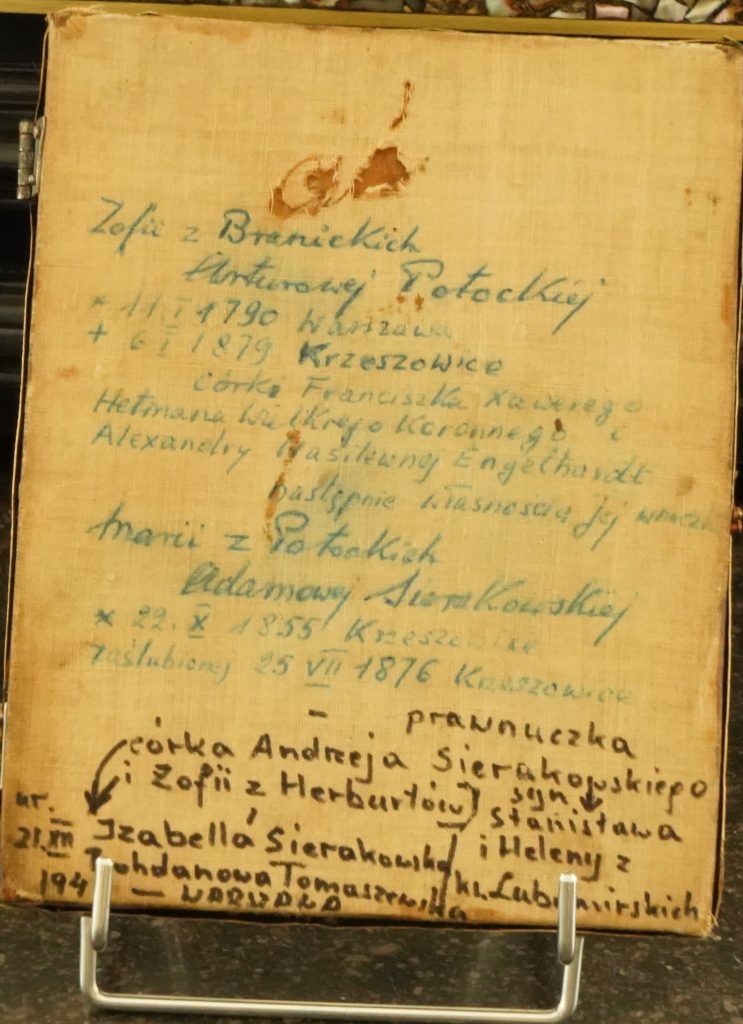 Zofii z Branickich
Arturowej Potockiej
* 11. I 1790 Warszawa
+ 6 I 1879 Krzeszowice
córki Franciszka Xawerego
Hetmana Wielkiego Koronnego i
Alexandry Wasilewnej Engelhardt
następnie własnością Jej
Marii z Potockich
Adamowej Sierakowskiej
* 22. X 1855 Krzeszowice
zaślubionej 25 VII 1876 Krzeszowice
- prawnuczka
córka Andrzeja Sierakowskiego
i Zofii z Herburtów) syn
Stanisława
ur. Izabella Sierakowska i Heleny z
21. XII Bohdanowa Tomaszewska / ks. Lubomirskich
194 - WARSZAWA